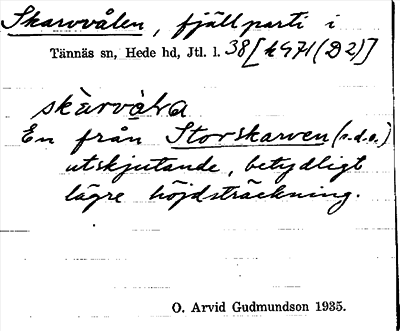 Skarvvålen, fjällparti i
Tännäs sn, Hede hd, Jtl. l. 38[k971(D2)]
skàrvàɫa
En från Storskarven (s.d.o.)
utskjutande, betydligt
lägre höjdsträckning.
O. Arvid Gudmundson 1935.